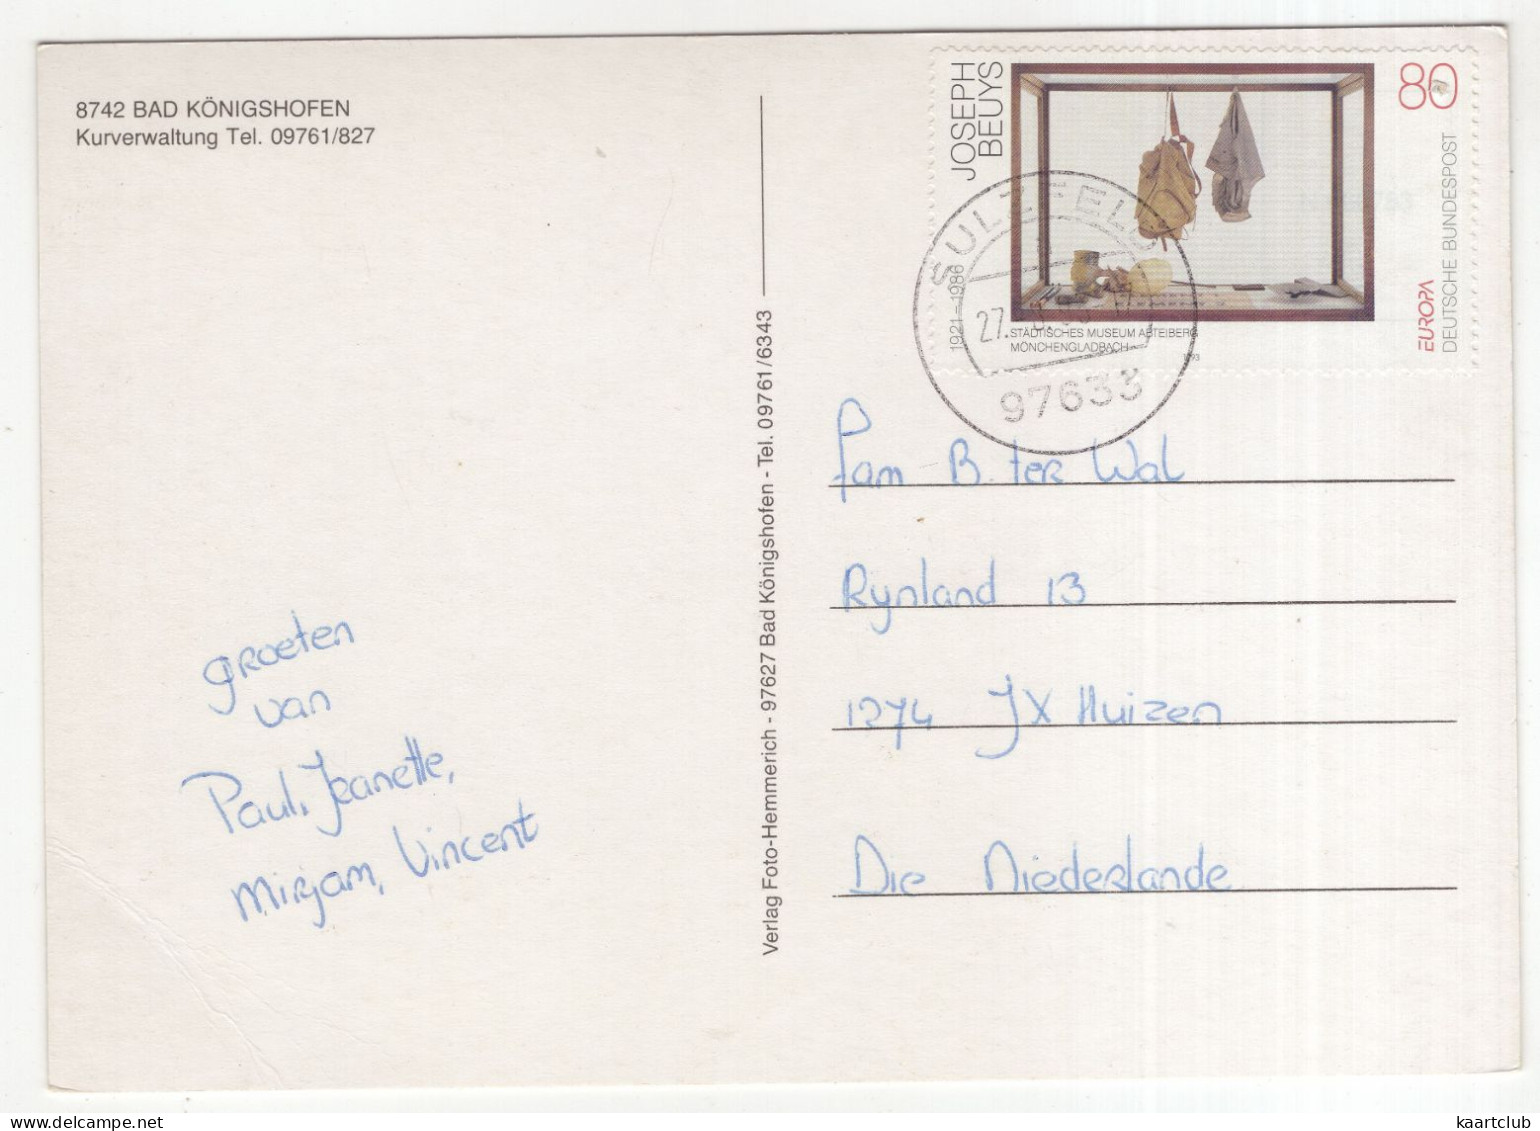 8742 BAD KÖNIGSHOFEN
Kurverwaltung Tel. 09761/827
groeten
van
Paul, Jeanette,
Mirjam, Vincent
Verlag Foto-Hemmerich - 97627 Bad Königshofen - Tel. 09761/6343
JOSEPH
BEUYS
1921–1986
80
STÄDTISCHES MUSEUM ABTEIBERG
MÖNCHENGLADBACH
1993
EUROPA
DEUTSCHE BUNDESPOST
SULZFELD
27.
97633
Fam B. ter Wal
Rynland 13
1274 JX Huizen
Die Niederlande
kaartclub